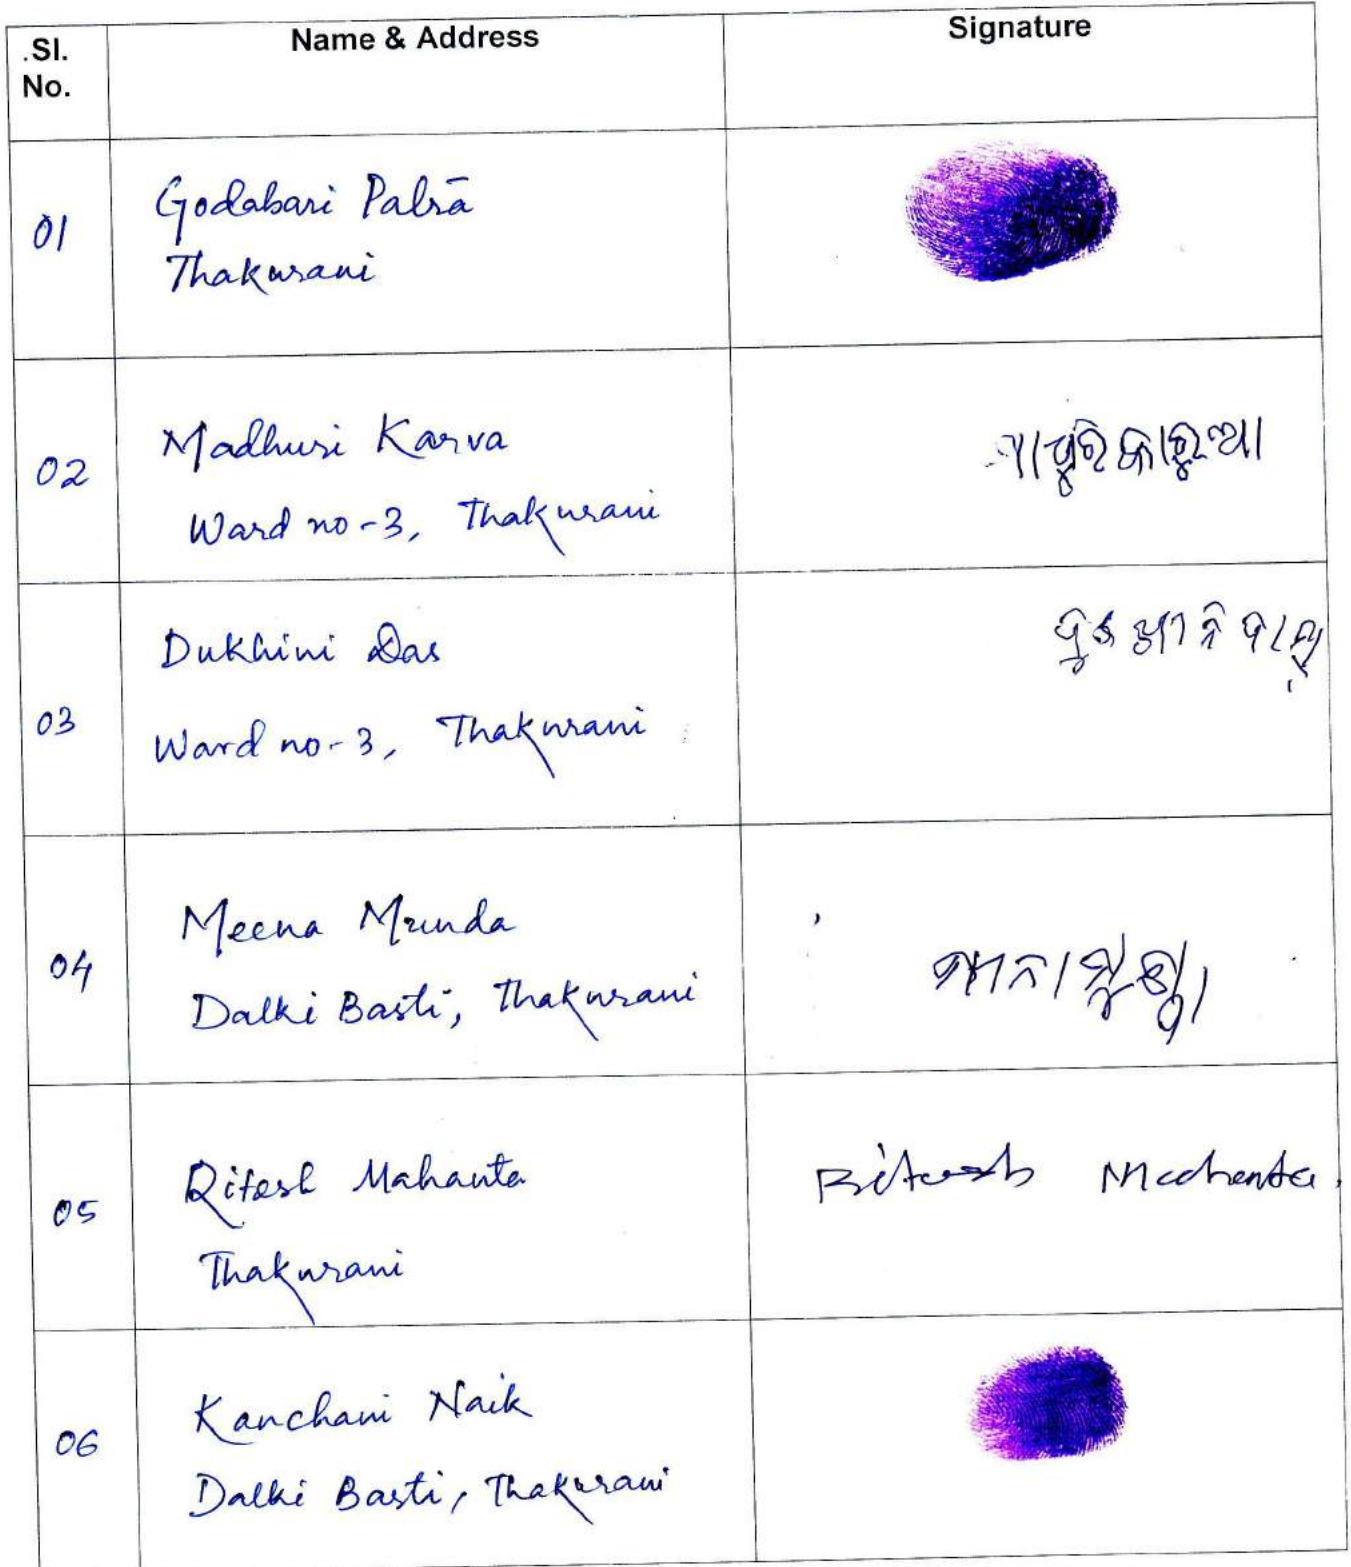 .Sl. No.
Name & Address
Signature
01
Godabari Palrā
Thakurani
02
Madhuri Karva
Ward no-3, Thakurani
ମାଧୁରି କାରୁଆ
03
Dukhini Das
Ward no-3, Thakurani
04
Meena Munda
Dalki Basti, Thakurani
05
Ritesh Mahanta
Thakurani
Ritesh Mahanta
06
Kanchani Naik
Dalki Basti, Thakurani